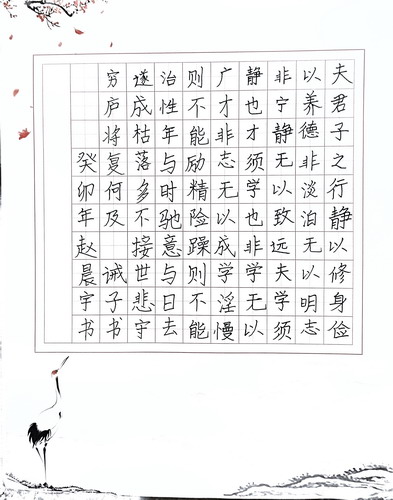 夫君子之行静以修身俭
以养德非淡泊无以明志
非宁静无以致远夫学须
静也才须学也非学无以
广才非志无以成学淫慢
则不能励精险躁则不能
治性年与时驰意与日去
遂成枯落多不接世悲守
穷庐将复何及 诫子书
癸卯年赵晨宇书